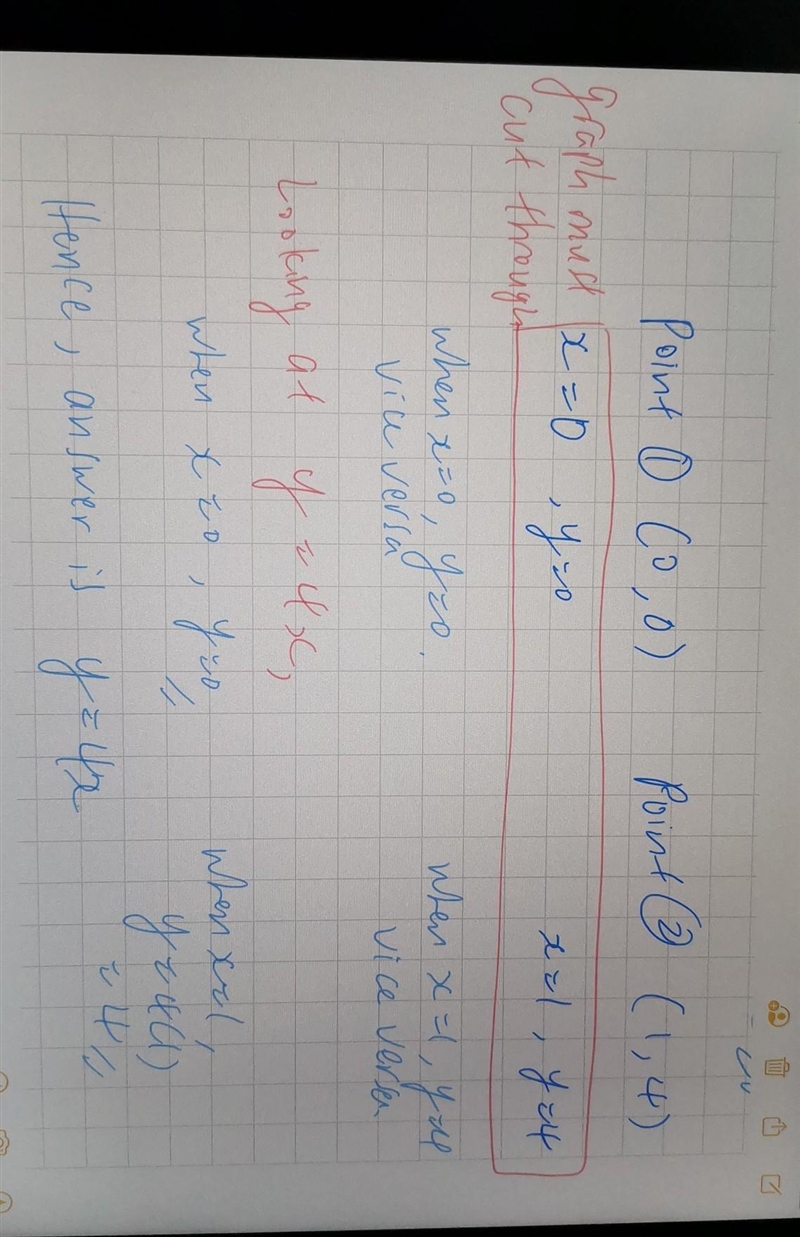 Point ① (0,0) Point ② (1,4)
graph must cut through
x=0, y=0 x=1, y=4
when x=0, y=0, when x=1, y=4
vice versa vice versa
Looking at y=4x,
when x=0, y=0 when x=1,
y=4(1)
=4
Hence, answer is y=4x